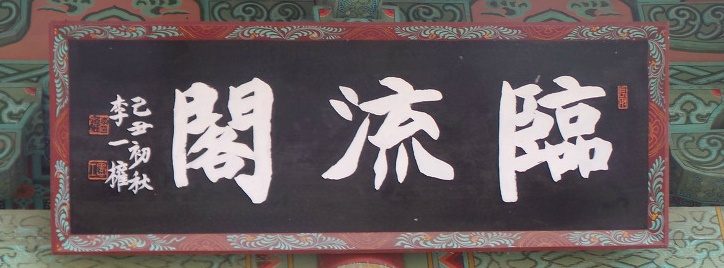 臨流閣
己丑初秋
李一權